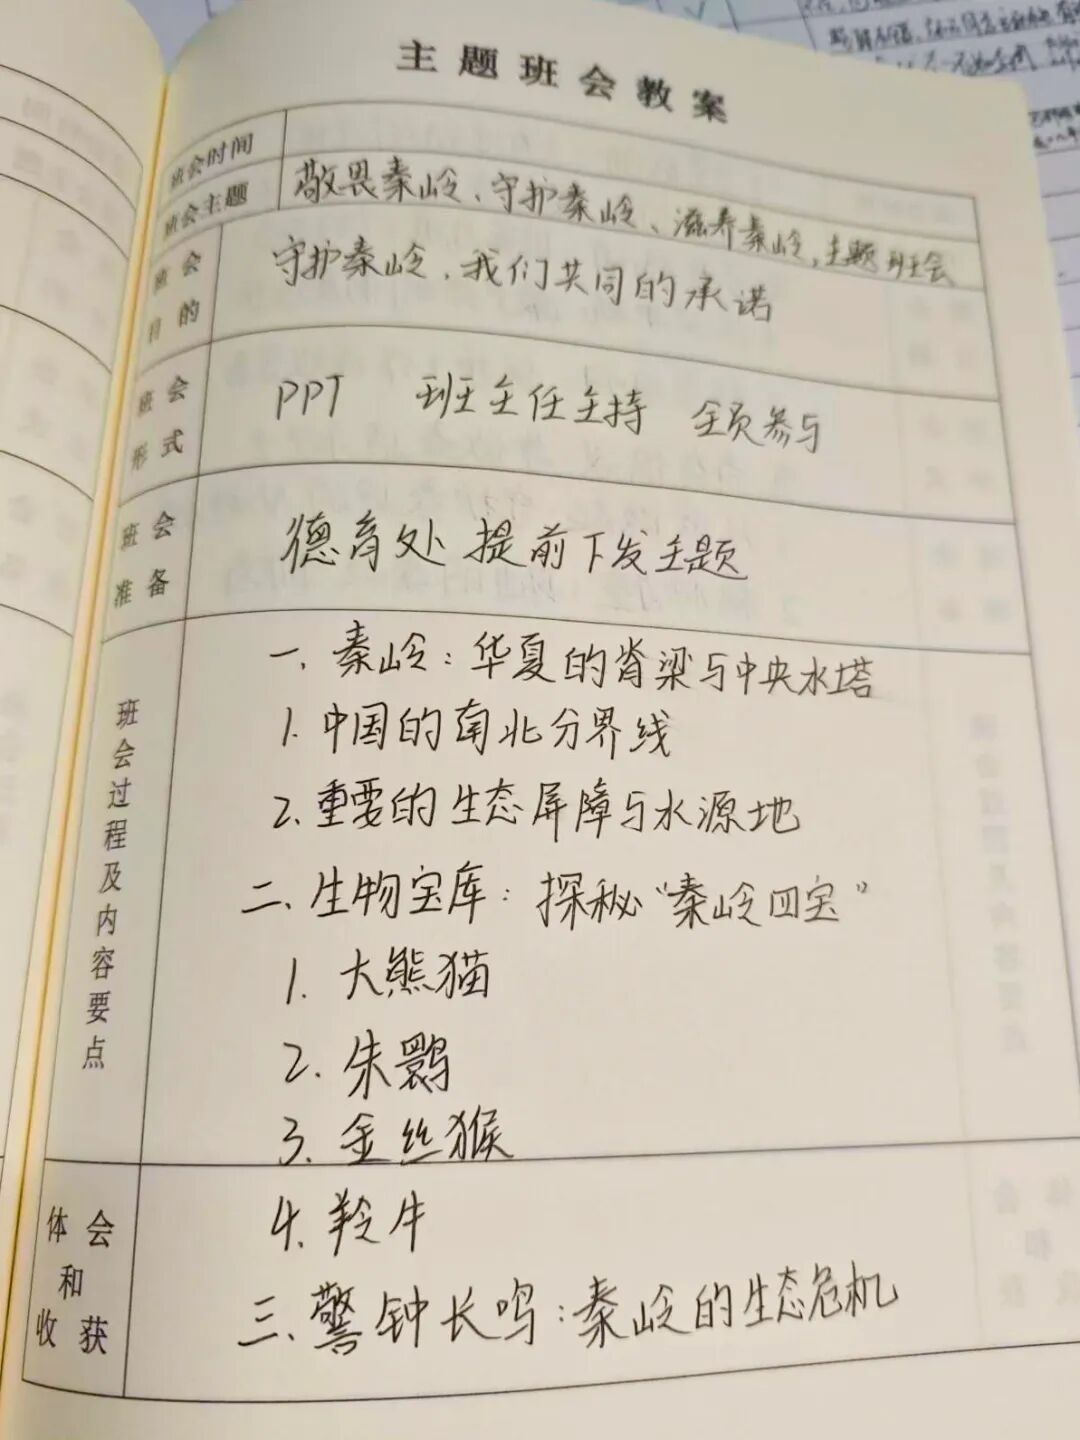 主题班会教案
班会时间
班会主题 敬畏秦岭、守护秦岭、滋养秦岭,主题班会
班会目的 守护秦岭,我们共同的承诺
班会形式 PPT 班主任主持 全员参与
班会准备 德育处 提前下发主题
班会过程及内容要点
一、秦岭:华夏的脊梁与中央水塔
1.中国的南北分界线
2.重要的生态屏障与水源地
二、生物宝库:探秘“秦岭四宝”
1.大熊猫
2.朱鹮
3.金丝猴
体会和收获
4.羚牛
三、警钟长鸣:秦岭的生态危机